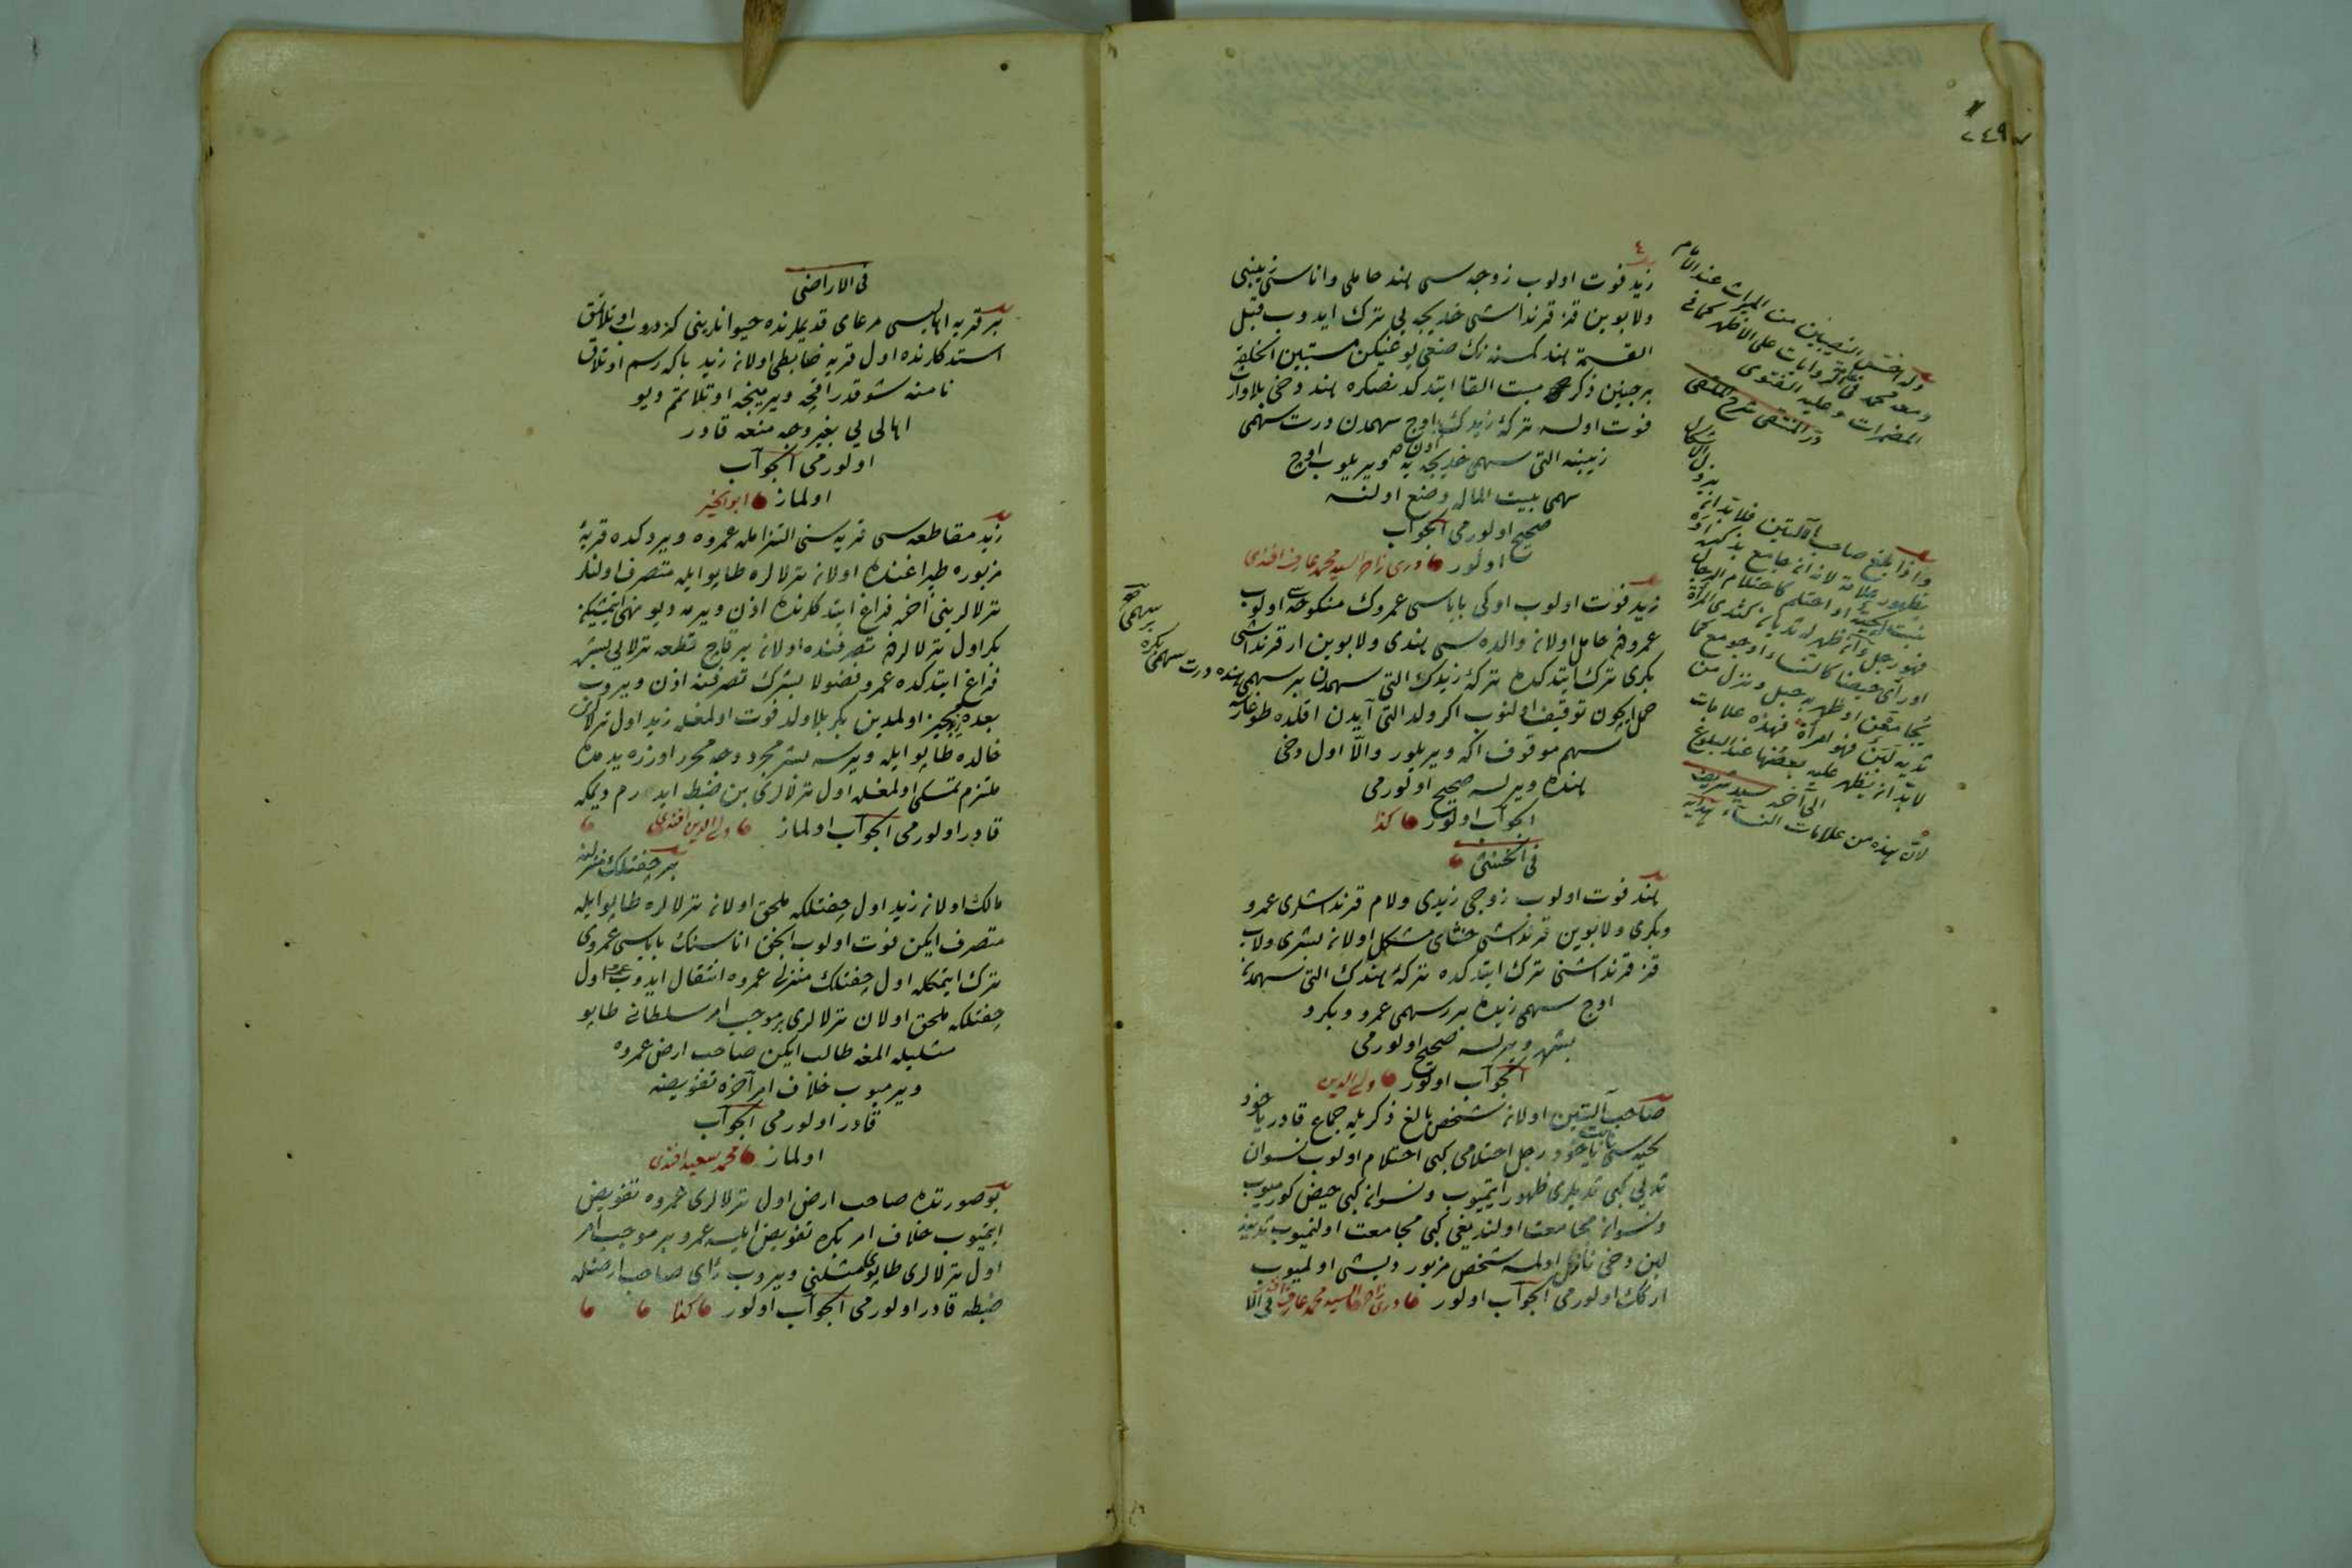 ٢٤٩
زيد فوت اولوب زوجه سى هند حامل و اناسى زينبى
ولابوين قز قرنداشى خديجه يى ترك ايدوب قبل
القسمة هند كمسنه نك صنعى يوغيكن مستبين الخلقه
بر جنين ذكر ميت القا ايتدكدنصكره هند دخى بلا وارث
فوت اولسه تركهٔ زيدك اون اوج سهمدن درت سهمى
زينبه التى سهمى خديجه يه ويريلوب اوج
سهمى بيت المال وضع اولنسه
صحيح اولورمى الجواب
اولور درى زاده السيد محمد عارف افندى
زيد فوت اولوب اوكى باباسى عمروك منكوحه سى اولوب
عمرودن حامل اولان والده سى هندى ولابوين ار قرنداشى
بكرى ترك ايتدكده تركهٔ زيدك التى سهمدن بر سهمى هنده درت سهمى بكره بر سهمى
حمل ايچون توقيف اولنوب اكر ولد التى آيدن اقلده طوغارسه
سهم موقوف اكه ويريلور والّا اول دخى
هنده ويرلسه صحيح اولورمى
الجواب اولور كذا
فى الخنثى
هند فوت اولوب زوجى زيدى ولام قرنداشلرى عمرو
وبكرى ولابوين قرنداشى خنثاى مشكل اولان بشرى ولاب
قز قرنداشنى ترك ايتدكده تركهٔ هندك التى سهمدن
اوج سهمى زيده برر سهمى عمرو وبكر و
بشره ويرلسه صحيح اولورمى
الجواب اولور ولى الدين
صاحب آلتين اولان شخص بالغ ذكريله جماع قادر ياخود
لحيه سى نابت ياخود رجل احتلامى كبى احتلام اولوب نسوان
ثديى كبى ثديلرى ظهور ايتميوب ونسوان كبى حيض كورميوب
ونسوانه مجامعت اولنديغى كبى مجامعت اولنميوب ثديينه
لبن دخى نازل اولمسه شخص مزبور ديشى اولميوب
اركك اولورمى الجواب اولور درى زاده السيد محمد عارف افندى
وله اخس النصيبين من الميراث عند الامام
ومعه محمد فى عامة الروايات على الاظهر كما فى
المضمرات وعليه الفتوى
در المنتقى شرح الملتقى
واذا بلغ صاحب الآلتين فلا بد ان يزول الاشكال
بظهور علامة لانه ان جامع بذكره او
نبت لحيته او احتلم كاحتلام الرجال
فهو رجل وان ظهر له ثديان كثدى المرأة
او رأى حيضا كالنساء او جومع كما
يجامعن او ظهر به حبل ونزل من
ثديه لبن فهو امرأة فهذه علامات
لا بد ان يظهر عليه بعضها عند البلوغ
الى آخره سيد شريف
لان هذه من علامات النساء هدايه
فى الاراضى
بر قريه اهاليسى مرعاى قديملرنده حيوانلرينى كزدروب اوتلاتمق
استدكلرنده اول قريه ضابطى اولان زيد بكا رسم اوتلاق
نامنه شو قدر اقچه ويرمينجه اوتلاتمم ديو
اهالى يى بغير وجه منعه قادر
اولورمى الجواب
اولماز ابو الخير
زيد مقاطعه سى قريه سنى التزامله عمروه ويردكده قريهٔ
مزبوره طپراغنده اولان ترلالره طاپو ايله متصرف اولنلر
ترلالرينى آخره فراغ ايتدكلرنده اذن ويرمه ديو نهى ايتميشيكن
بكر اول ترلالردن تصرفنده اولان بر قاچ قطعه ترلايى بشره
فراغ ايتدكده عمرو فضولا بشرك تصرفنه اذن ويروب
بعده زيد مجيز اولمدين بكر بلا ولد فوت اولمغله زيد اول ترلالرى
خالده طاپو ايله ويرسه بشر مجرد وجه محرر اوزره يدمده
ملتزم تمسكى اولمغله اول ترلالرى بن ضبط ايدرم ديمكه
قادر اولورمى الجواب اولماز ولى الدين افندى
بر چفتلك منزلنه
مالك اولان زيد اول چفتلكه ملحق اولان ترلالره طاپو ايله
متصرف ايكن فوت اولوب انجق اناسنك باباسى عمروى
ترك ايتمكله اول چفتلك منزلى عمروه انتقال ايدوب عمرو اول
چفتلكه ملحق اولان ترلالرى بر موجب امر سلطانى طاپو
مثليله المغه طالب ايكن صاحب ارض عمروه
ويرميوب خلاف امر آخره تفويضه
قادر اولورمى الجواب
اولماز محمد سعيد افندى
بو صورتده صاحب ارض اول ترلالرى عمروه تفويض
ايتميوب خلاف امر بكره تفويض ايلسه عمرو بر موجب امر
اول ترلالرى طاپوى مثلنى ويروب رأى صاحب ارضله
ضبطه قادر اولورمى الجواب اولور كذا